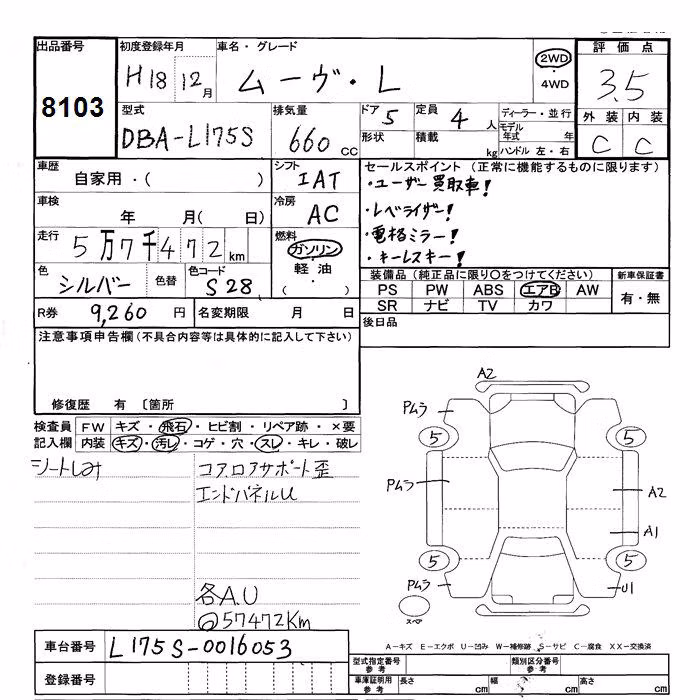 出品番号 初度登録年月 車名・グレード 評価点
8103 H18 12月 ムーヴ・L 2WD・4WD 3.5
型式 排気量 ドア 5 定員 4人 ディーラー・並行 外装 内装
DBA-L175S 660cc 形状 積載 kg モデル年式 年 C C
ハンドル 左・右
車歴 シフト セールスポイント (正常に機能するものに限ります)
自家用・( ) IAT ・ユーザー買取車!
車検 冷房 ・レベライザー!
年 月( 日) AC ・電格ミラー!
走行 燃料 ・キーレスキー!
5万7千472km ガソリン・軽油・( )
装備品(純正品に限り○をつけてください) 新車保証書
色 シルバー 色替 色コード S28
PS PW ABS エアB AW 有・無
SR ナビ TV カワ
R券 9,260円 名変期限 月 日 後日品
注意事項申告欄(不具合内容等は具体的に記入して下さい)
修復歴 有 〔箇所 〕
検査員 FW キズ・飛石・ヒビ割・リペア跡・×要
記入欄 内装 キズ・汚レ・コゲ・穴・スレ・キレ・破レ
シートしみ コアロアサポート歪
エンドパネルU
各A.U
@57472Km
A2
Pムラ
5 5
Pムラ A2
A1
5 5
Pムラ U1
スペア
A-キズ E-エクボ U-凹み W-補修跡 S-サビ C-腐食 XX-交換済
車台番号 L175S-0016053
登録番号
型式指定番号 参考 類別区分番号 参考
車庫証明用 参考 長さ cm 幅 cm 高さ cm